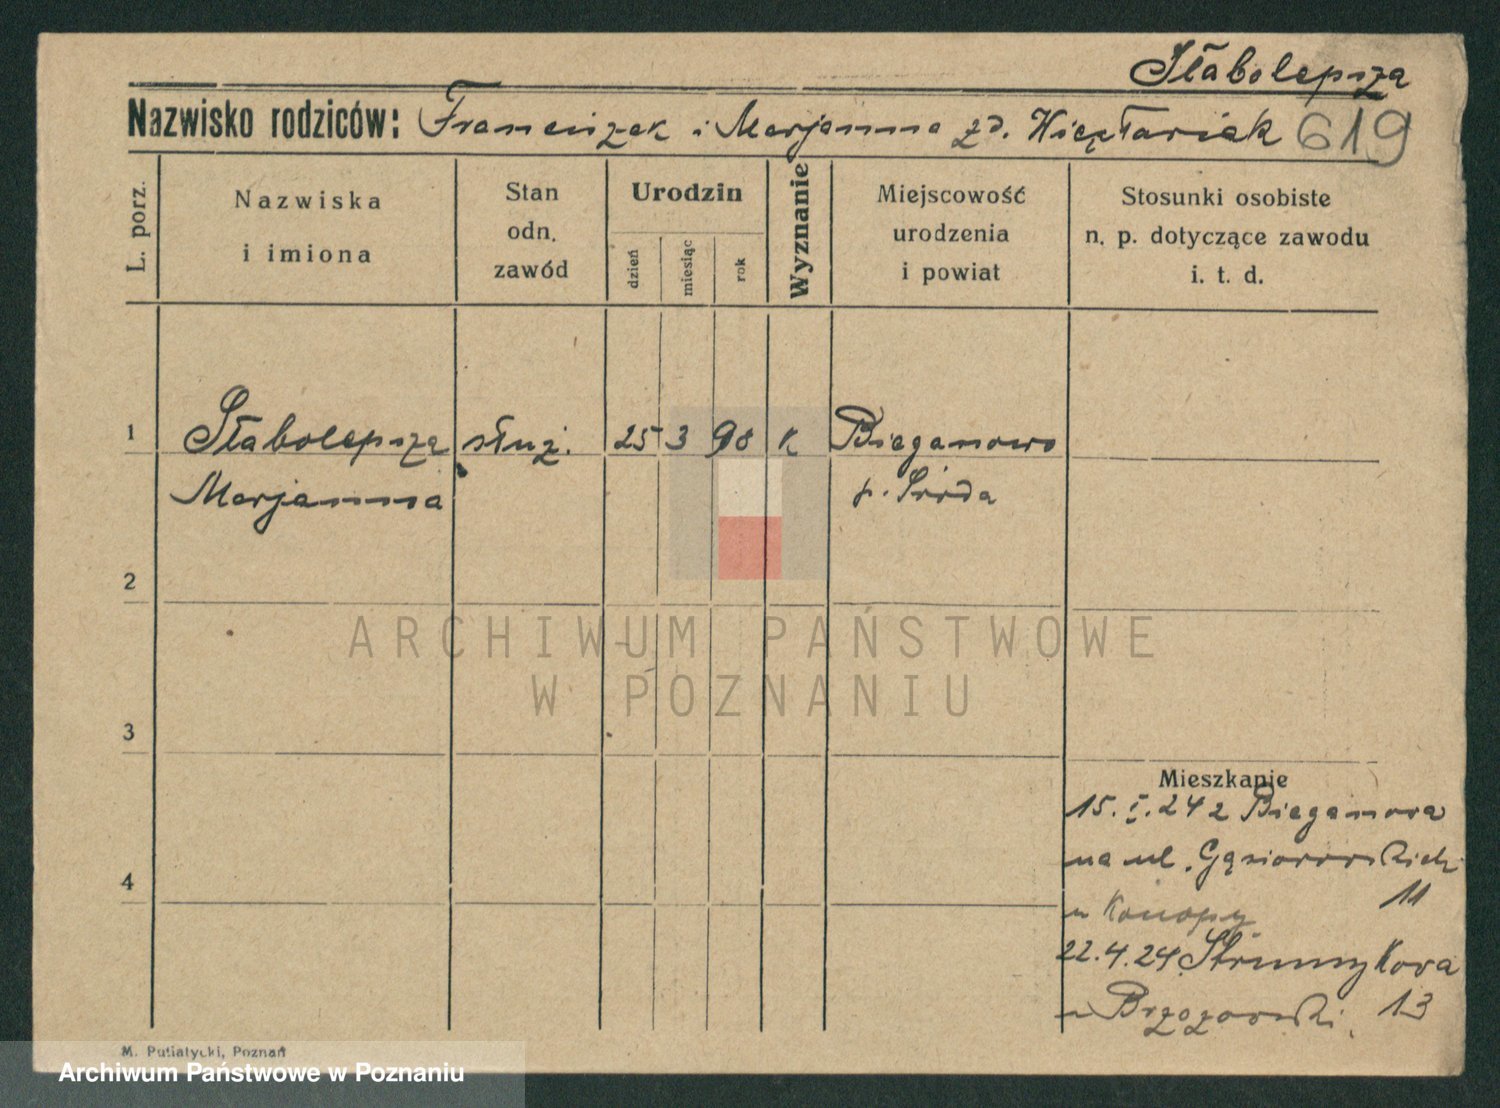 Słabolepsza
Nazwisko rodziców: Franciszek i Marjanna zd. 619
L. porz.
Nazwiska
i imiona
Stan
odn.
zawód
Urodzin
dzień
miesiąc
rok
Wyznanie
Miejscowość
urodzenia
i powiat
Stosunki osobiste
n. p. dotyczące zawodu
i. t. d.
1 Słabolepszą służ. 25 3 98 k Bieganowo
Marjanna p. Środa
2
ARCHIWUM PAŃSTWOWE
W POZNANIU
3
Mieszkanie
15. I. 24 z Bieganowa
na ul. Gąsiorowskich
u Konopy 11
4
22.4.24. Strumykowa
u Brzozowski. 13
M. Putiatycki, Poznań
Archiwum Państwowe w Poznaniu